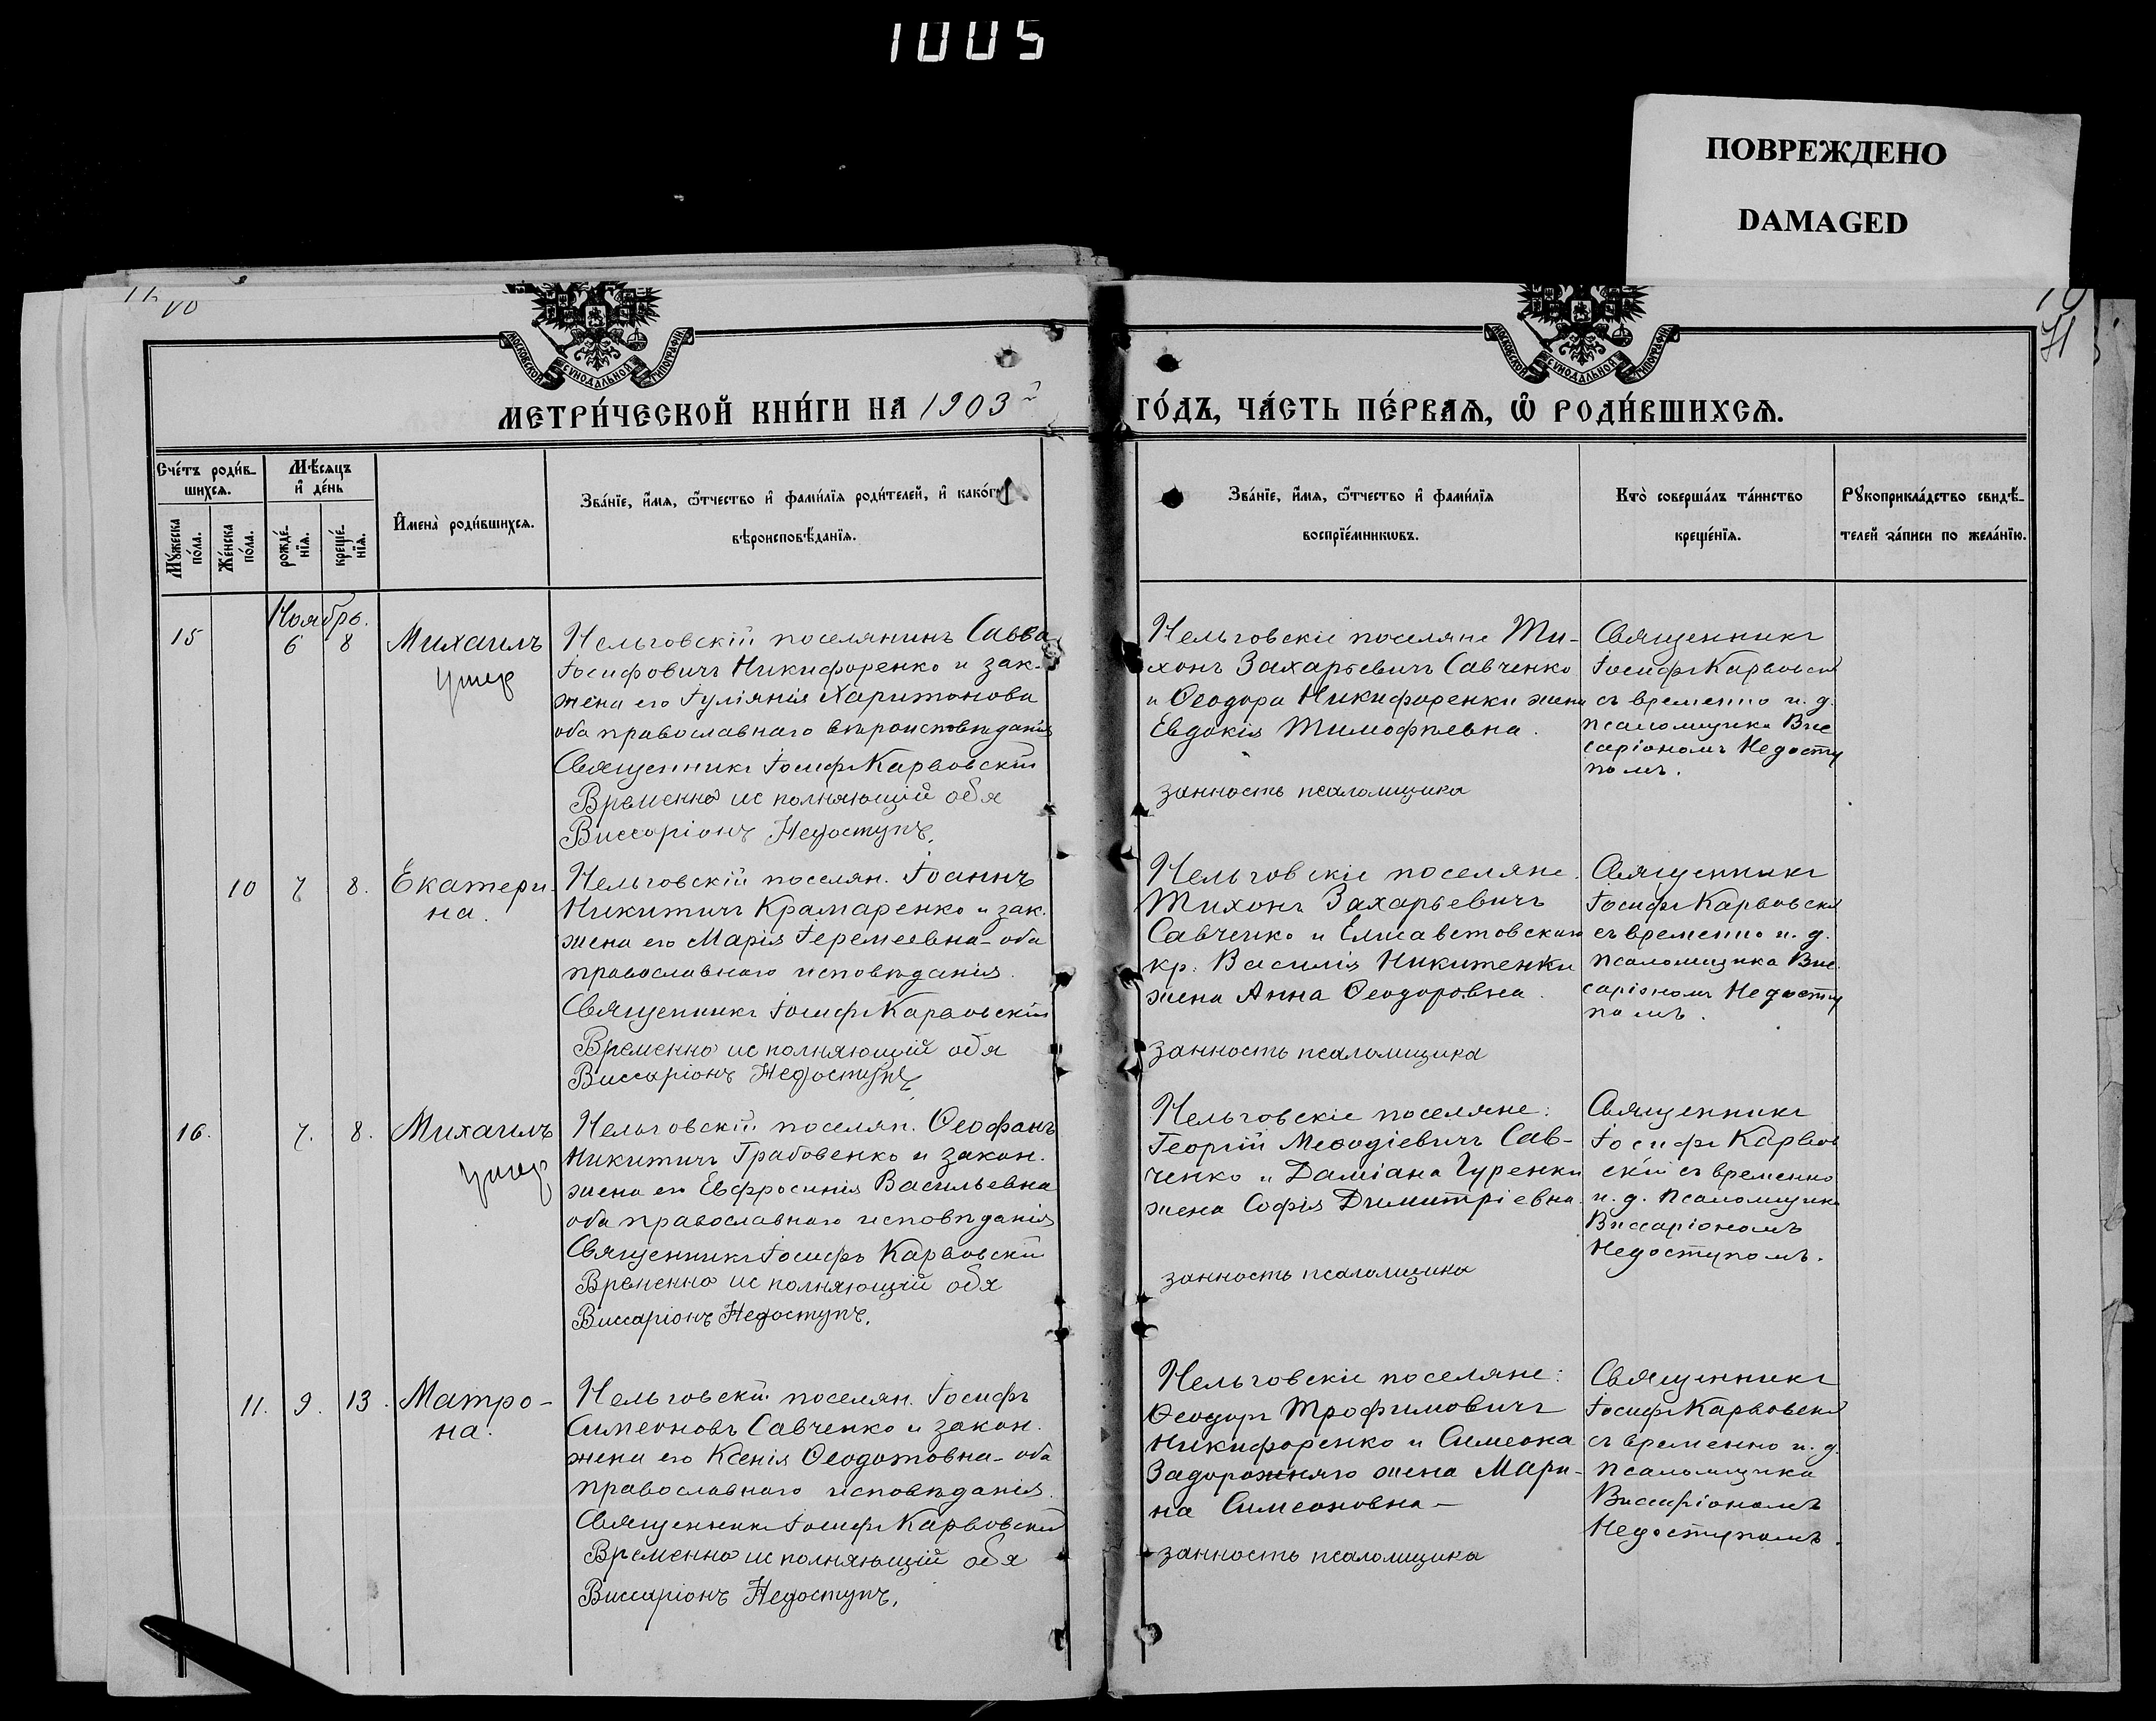 1005
ПОВРЕЖДЕНО
DAMAGED
МОСКОВСКОЙ СѴНОДАЛЬНОЙ ТИПОГРАФІИ
МОСКОВСКОЙ СѴНОДАЛЬНОЙ ТИПОГРАФІИ
МЕТРИ́ЧЕСКОЙ КНИ́ГИ НА 1903й
ГО́ДЪ, ЧА́СТЬ ПЕ́РВАѦ, Ѽ РОДИ́ВШИХСѦ.
Сче́тъ роди́в-
шихсѧ.
Мѣ́сѧцъ
и҆ де́нь
Мꙋ́жеска
по́ла.
Же́нска
по́ла.
рожде́-
нїѧ.
креще́-
нїѧ.
И҆мена̀ роди́вшихсѧ.
Зва́нїе, и҆́мѧ, ѻ҆́тчество и҆ фами́лїѧ роди́телей, и҆ како́гѡ
вѣроисповѣ́данїѧ.
Зва́нїе, и҆́мѧ, ѻ҆́тчество и҆ фами́лїѧ
воспрїе́мникѡвъ.
Кто̀ соверша́лъ та́инство
креще́нїѧ.
Рꙋкоприкла́дство свидѣ́-
телей за́писи по жела́нїю.
Ноябрь.
15 6 8 Михаилъ
умер
Нельговскій поселянинъ Савва
Іосифовичъ Никифоренко и зак.
жена его Іуліянія Харитонова
оба православнаго вѣроисповѣданія
Священникъ Іосифъ Карвовскій
Временно исполняющій обя
Виссаріонъ Недоступъ.
Нельговскіе поселяне Ти-
хонъ Захарьевичъ Савченко
и Ѳеодора Никифоренки жена
Евдокія Тимофѣевна.
занность псаломщика
Священникъ
Іосифъ Карвовскій
съ временно и. д.
псаломщика Вис
саріономъ Недосту
помъ.
10 7 8. Екатери-
на.
Нельговскій поселян. Іоаннъ
Никитичъ Крамаренко и зак.
жена его Марія Іеремеевна - оба
православнаго исповѣданія.
Священникъ Іосифъ Карвовскій
Временно исполняющій обя
Виссаріонъ Недоступъ.
Нельговскіе поселяне.
Тихонъ Захарьевичъ
Савченко и Елисаветовскаго
кр. Василія Никитенки
жена Анна Ѳеодоровна.
занность псаломщика
Священникъ
Іосифъ Карвовскій
съ временно и. д.
псаломщика Вис
саріономъ Недосту
помъ.
16. 7. 8. Михаилъ
умер
Нельговскій поселян. Ѳеофанъ
Никитичъ Грабовенко и закон.
жена его Евфросинія Васильевна
оба православнаго исповѣданія
Священникъ Іосифъ Карвовскій
Временно исполняющій обя
Виссаріонъ Недоступъ.
Нельговскіе поселяне:
Георгій Меѳодіевичъ Сав-
ченко и Даміана Гуренки
жена Софія Димитріевна.
занность псаломщика
Священникъ
Іосифъ Карвов
скій съ временно
и. д. псаломщика
Виссаріономъ
Недоступомъ.
11. 9. 13. Матро-
на.
Нельговскій поселян. Іосифъ
Симеоновъ Савченко и закон.
жена его Ксенія Ѳеодотовна - оба
православнаго исповѣданія.
Священникъ Іосифъ Карвовскій
Временно исполняющій обя
Виссаріонъ Недоступъ.
Нельговскіе поселяне:
Ѳеодоръ Трофимовичъ
Никифоренко и Симеона
Задорожняго жена Мари-
на Симеоновна -
занность псаломщика
Священникъ
Іосифъ Карвовскій
съ временно и. д.
псаломщика
Виссаріономъ
Недоступомъ.